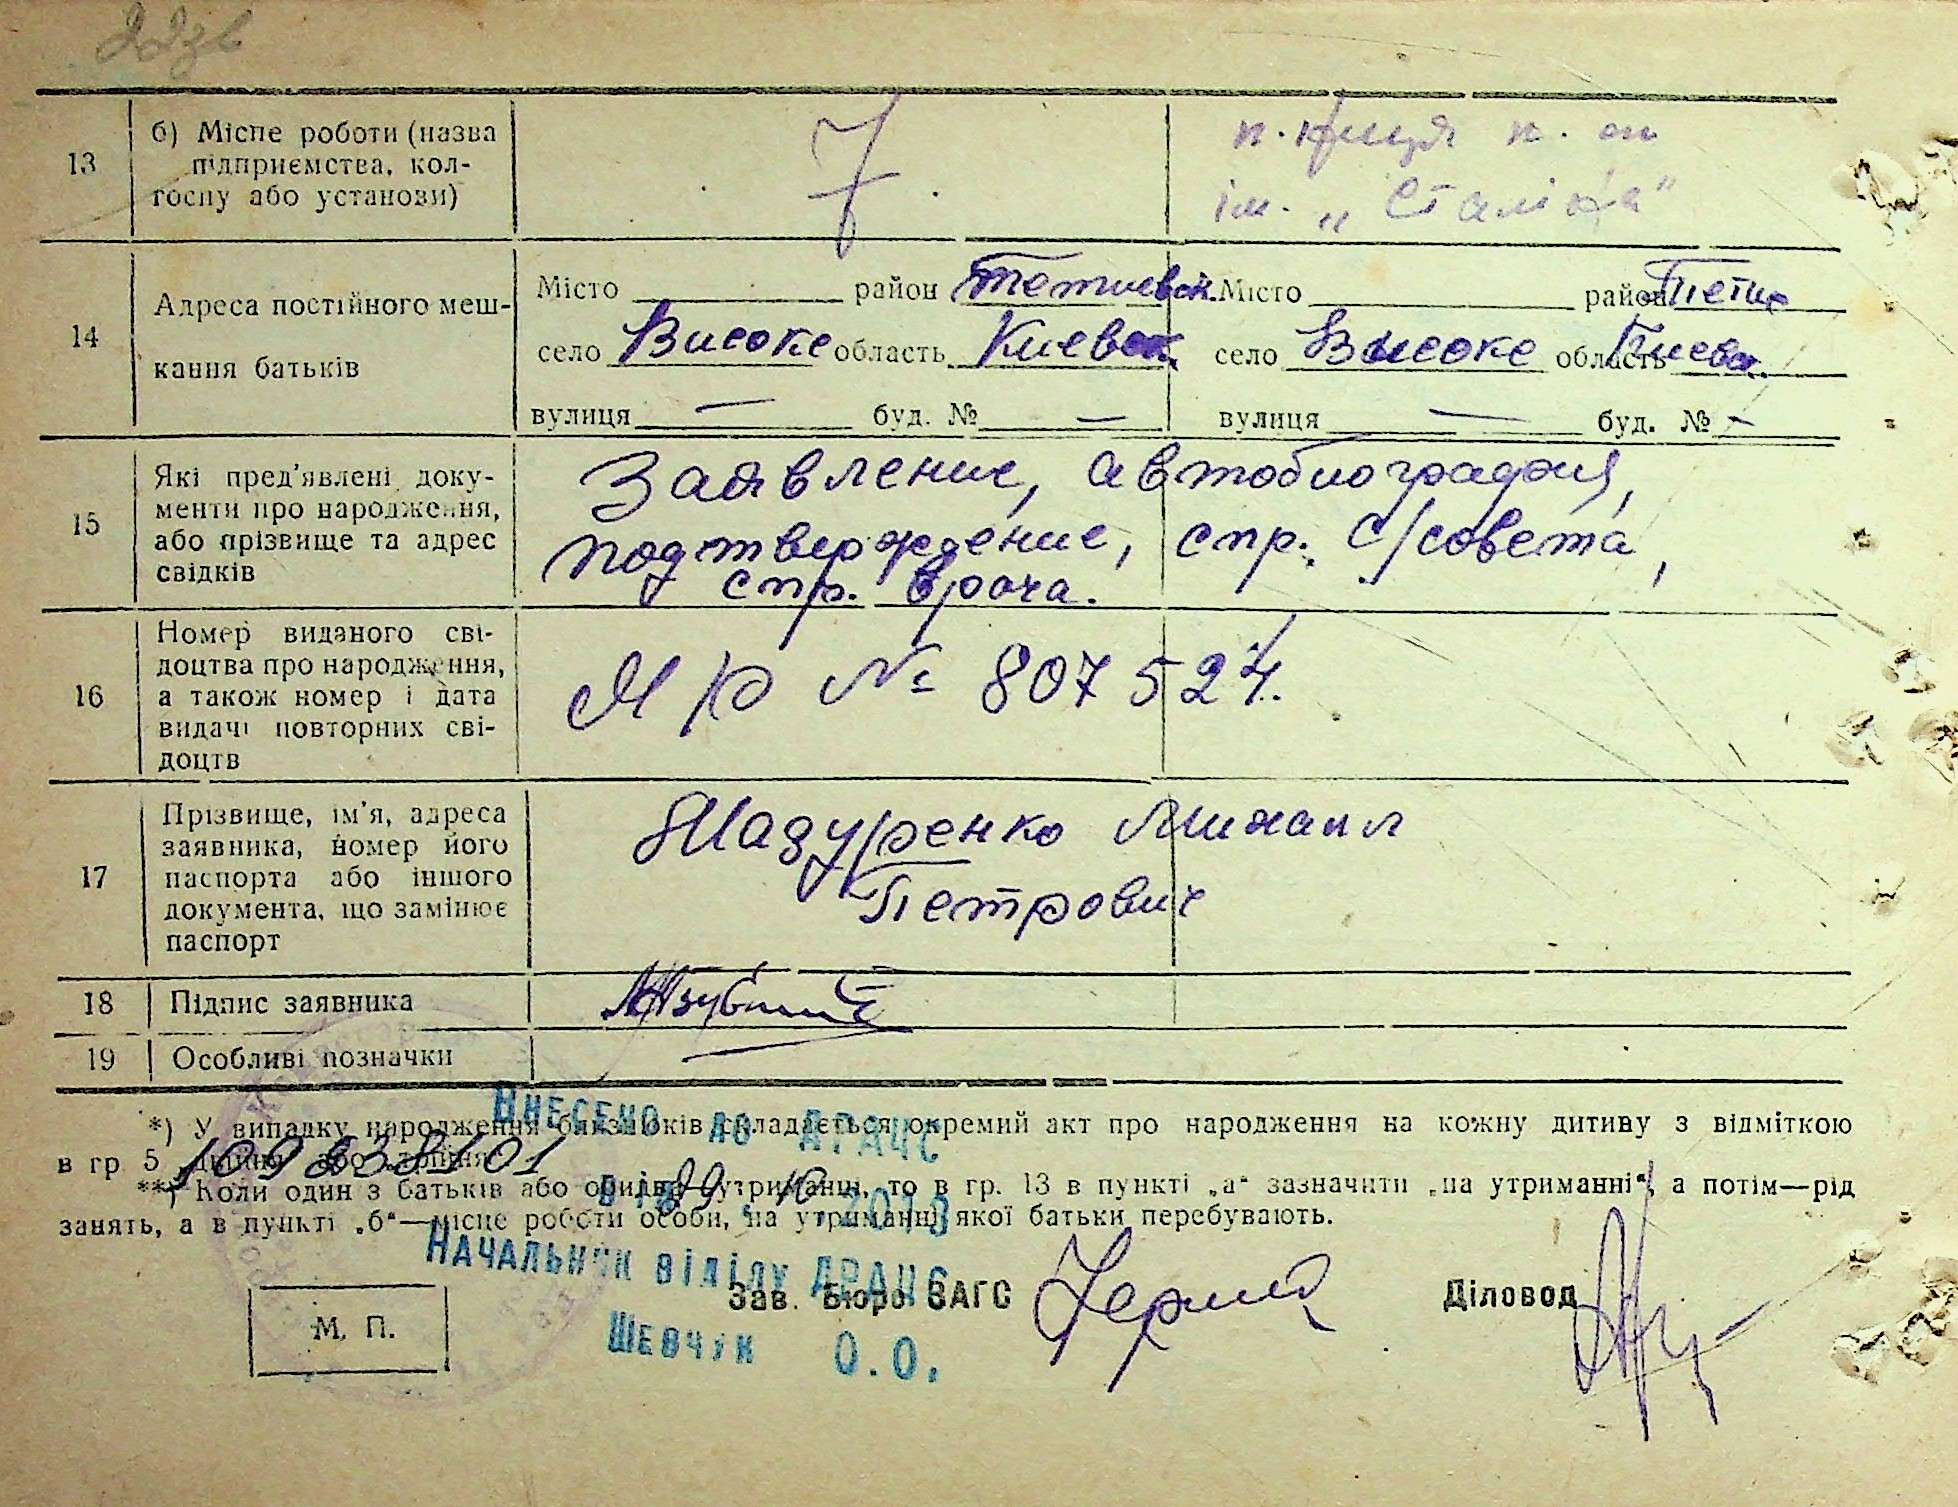 13
б) Місце роботи (назва
підприємства, кол-
госпу або установи)
ім. „Сталіна"
14
Адреса постійного меш-
кання батьків
Місто район Тетиевск. Місто район Тетие
село Високе область Киевск. село Високе область Киевск.
вулиця — буд. № — вулиця — буд. № —
15
Які пред'явлені доку-
менти про народження,
або прізвище та адрес
свідків
Заявление, автобиография,
подтверждение, спр. с/совета,
спр. врача.
16
Номер виданого сві-
доцтва про народження,
а також номер і дата
видачі повторних сві-
доцтв
№ 807524.
17
Прізвище, ім'я, адреса
заявника, номер його
паспорта або іншого
документа, що замінює
паспорт
Михаил
Петрович
18 Підпис заявника
19 Особливі позначки —
Внесено до ДРАЦС
*) У випадку народження близнюків складається окремий акт про народження на кожну дитину з відміткою
в гр 5 „двійня" або „трійня"
**) Коли один з батьків або обидва на утриманні, то в гр. 13 в пункті „а" зазначити „на утриманні", а потім—рід
занять, а в пункті „б"—місце роботи особи, на утриманні якої батьки перебувають.
Начальник відділу ДРАЦС
Зав. Бюро ЗАГС
Діловод
М. П.
Шевчук О.О.